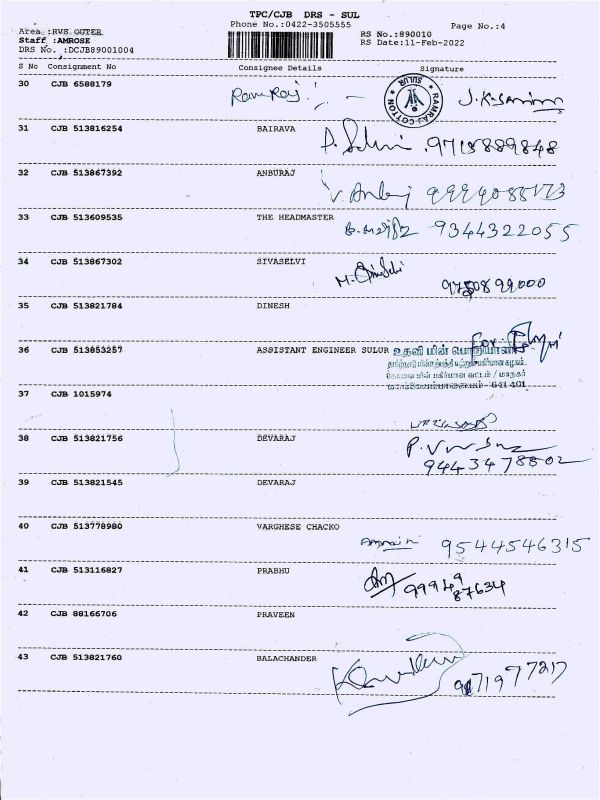 TPC/CJB DRS - SUL
Phone No.:0422-3505555
Page No.:4
Area :RVS OUTER
Staff :AMROSE
DRS No. :DCJB89001004
RS No.:890010
RS Date:11-Feb-2022
S No Consignment No Consignee Details Signature
30 CJB 6588179 RamRaj
RAMRAJ-COTTON
SULUR
31 CJB 513816254 BAIRAVA
9715889848
32 CJB 513867392 ANBURAJ
33 CJB 513609535 THE HEADMASTER
9344322055
34 CJB 513867302 SIVASELVI
9750899000
35 CJB 513821784 DINESH
36 CJB 513853257 ASSISTANT ENGINEER SULUR For
உதவி மின் பொறியாளர்
641 401
37 CJB 1015974
38 CJB 513821756 DEVARAJ
9443478802
39 CJB 513821545 DEVARAJ
40 CJB 513778980 VARGHESE CHACKO
9544546315
41 CJB 513116827 PRABHU
99949
87634
42 CJB 88166706 PRAVEEN
43 CJB 513821760 BALACHANDER